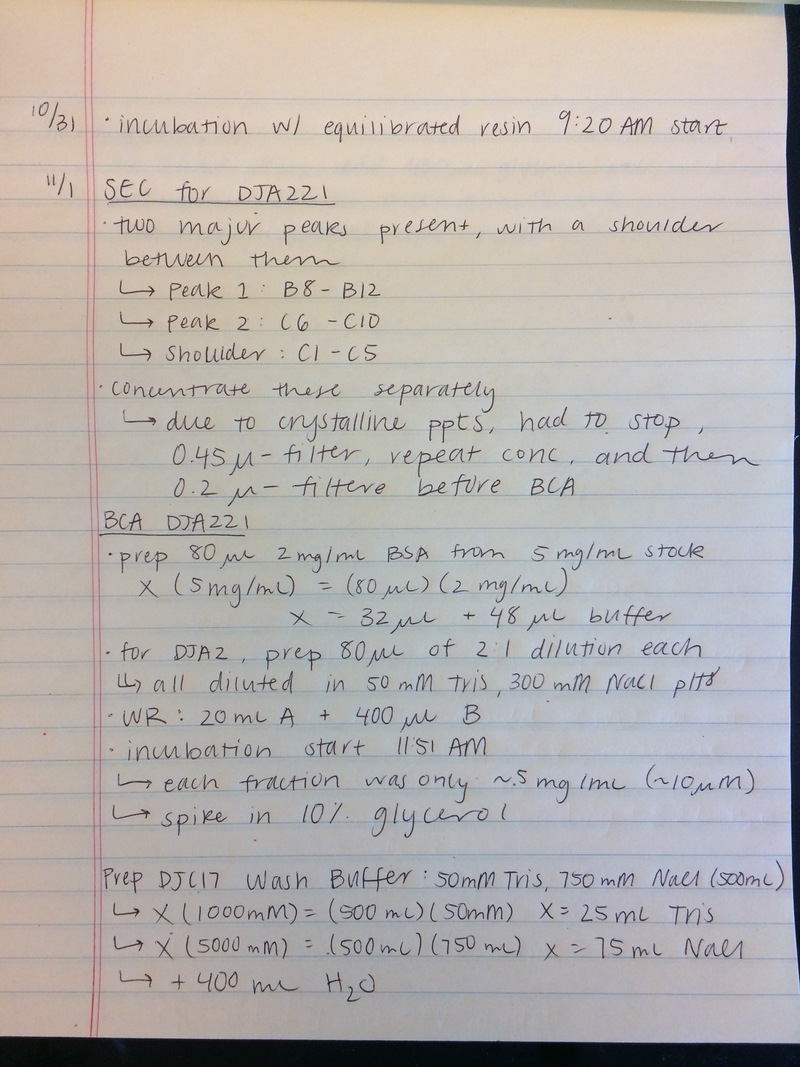 10/31 · incubation w/ equilibrated resin 9:20 AM start
11/1 SEC for DJA221
· two major peaks present, with a shoulder
between them
↳ Peak 1: B8-B12
↳ Peak 2: C6-C10
↳ Shoulder: C1-C5
· concentrate these separately
↳ due to crystalline ppts, had to stop,
0.45 μ-filter, repeat conc, and then
0.2 μ-filtere before BCA
BCA DJA221
· prep 80 μL 2mg/mL BSA from 5 mg/mL stock
x (5mg/mL) = (80 μL)(2 mg/mL)
x = 32 μL + 48 μL buffer
· for DJA2, prep 80 μL of 2:1 dilution each
↳ all diluted in 50 mM Tris, 300 mM NaCl pH8
· WR: 20 mL A + 400 μL B
· incubation start 11:51 AM
↳ each fraction was only ~.5 mg/mL (~10μM)
↳ spike in 10% glycerol
Prep DJC17 Wash Buffer: 50mM Tris, 750 mM NaCl (500mL)
↳ x (1000mM) = (500 mL)(50mM) x = 25 mL Tris
↳ x (5000 mM) = (500mL)(750 mL) x = 75 mL NaCl
↳ + 400 mL H₂O